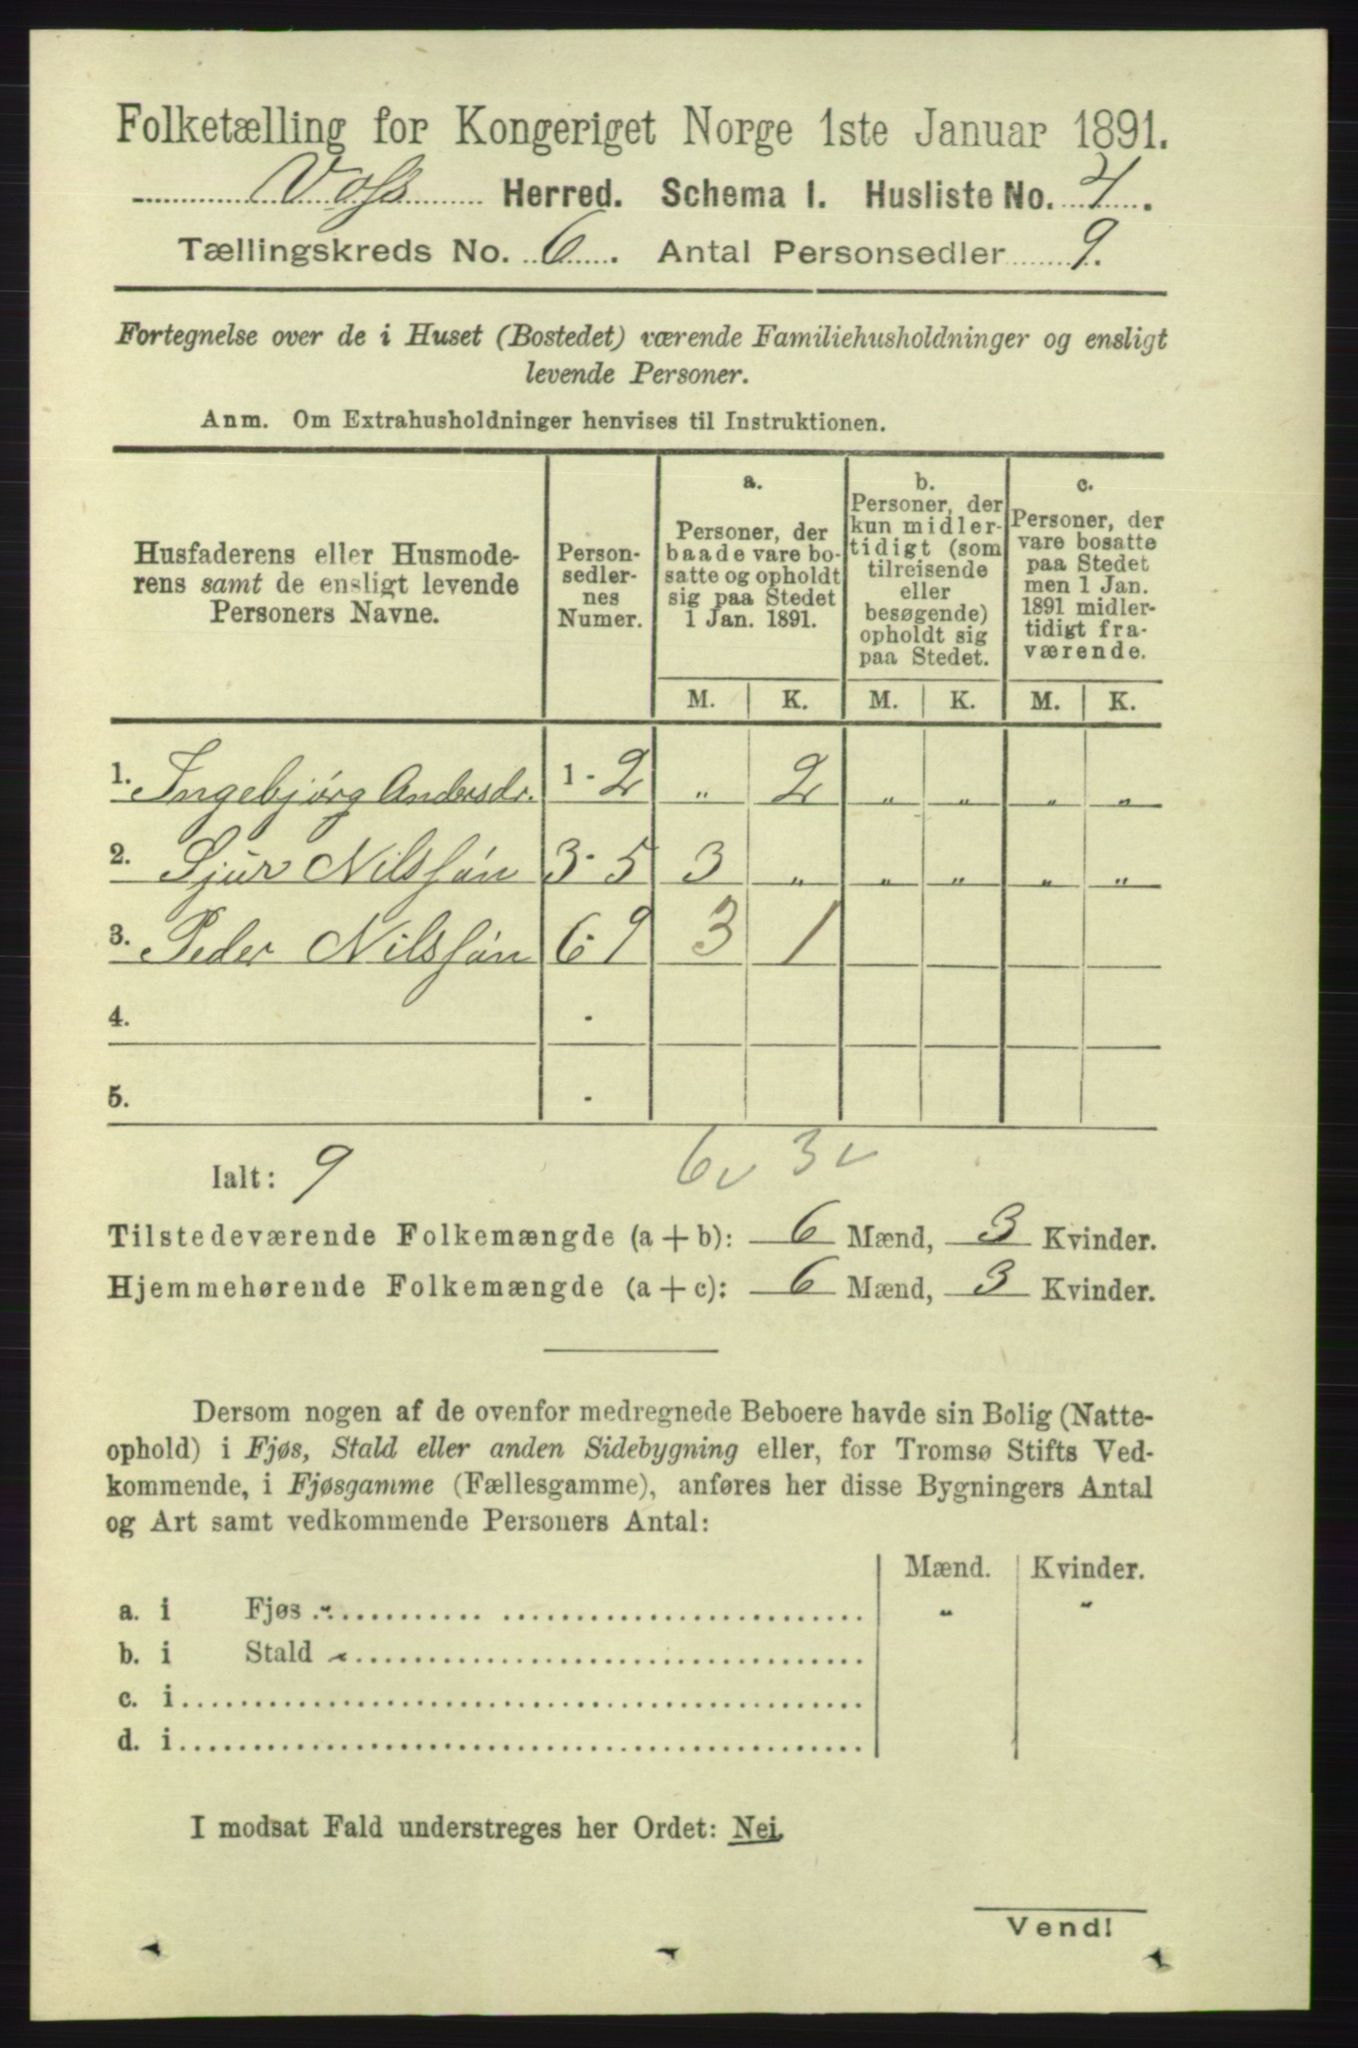 Folketælling for Kongeriget Norge 1ste Januar 1891.
Voss Herred. Schema I. Husliste No. 4.
Tællingskreds No. 6. Antal Personsedler 9.
Fortegnelse over de i Huset (Bostedet) værende Familiehusholdninger og ensligt
levende Personer.
Anm. Om Extrahusholdninger henvises til Instruktionen.
Husfaderens eller Husmode-
rens samt de ensligt levende
Personers Navne.
Person-
sedler-
nes
Numer.
a.
Personer, der
baade vare bo-
satte og opholdt
sig paa Stedet
1 Jan. 1891.
b.
Personer, der
kun midler-
tidigt (som
tilreisende
eller
besøgende)
opholdt sig
paa Stedet.
c.
Personer, der
vare bosatte
paa Stedet
men 1 Jan.
1891 midler-
tidigt fra-
værende.
M. K. M. K. M. K.
1. Ingebjørg Andersdr. 1-2 „ 2 „ „ „ „
2. Sjur Nilssøn 3-5 3 „ „ „ „ „
3. Peder Nilssøn 6-9 3 1
4. -
5. -
Ialt: 9 6 v 3 v
Tilstedeværende Folkemængde (a+b): 6 Mænd, 3 Kvinder.
Hjemmehørende Folkemængde (a+c): 6 Mænd, 3 Kvinder.
Dersom nogen af de ovenfor medregnede Beboere havde sin Bolig (Natte-
ophold) i Fjøs, Stald eller anden Sidebygning eller, for Tromsø Stifts Ved-
kommende, i Fjøsgamme (Fællesgamme), anføres her disse Bygningers Antal
og Art samt vedkommende Personers Antal:
Mænd. Kvinder.
a. i Fjøs „ „ „
b. i Stald „
c. i
d. i
I modsat Fald understreges her Ordet: Nei.
Vend!